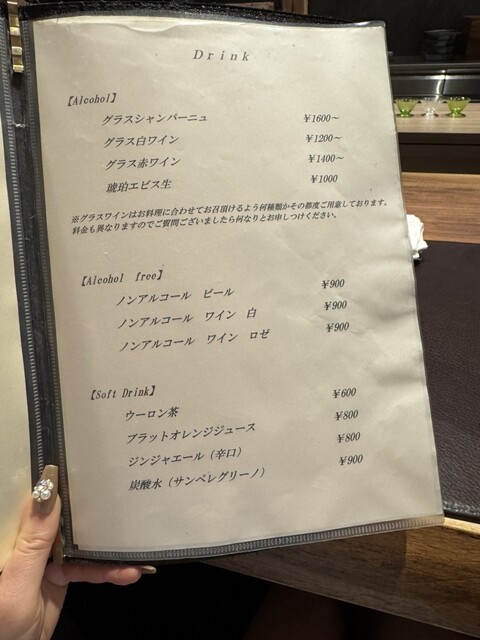 Drink
【Alcohol】
グラスシャンパーニュ ￥1600～
グラス白ワイン ￥1200～
グラス赤ワイン ￥1400～
琥珀ヱビス生 ￥1000
※グラスワインはお料理に合わせてお召頂けるよう何種類かその都度ご用意しております。
料金も異なりますのでご質問ございましたら何なりとお申しつけください。
【Alcohol free】
ノンアルコール ビール ￥900
ノンアルコール ワイン 白 ￥900
ノンアルコール ワイン ロゼ ￥900
【Soft Drink】
ウーロン茶 ￥600
ブラットオレンジジュース ￥800
ジンジャエール（辛口） ￥800
炭酸水（サンペレグリーノ） ￥900